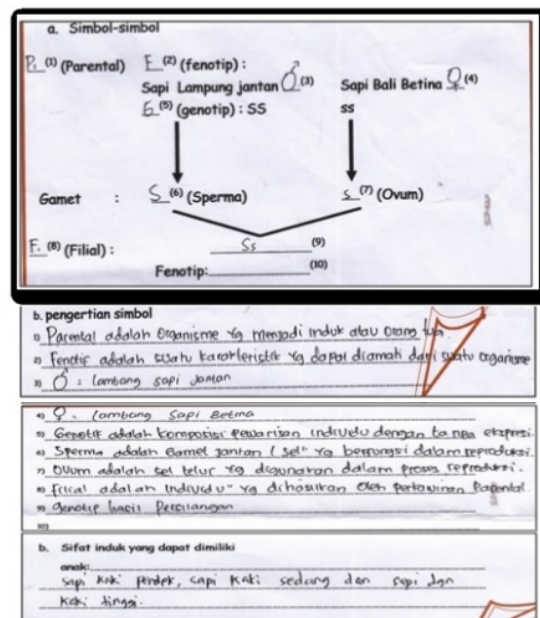 a. Simbol-simbol
P. (1) (Parental) F (2) (fenotip) :
Sapi Lampung jantan ♂ (3) Sapi Bali Betina ♀ (4)
G (5) (genotip) : SS ss
Gamet : S (6) (Sperma) s (7) (Ovum)
F. (8) (Filial) : Ss (9)
Fenotip: (10)
b. pengertian simbol
1) Parental adalah Organisme yg menjadi induk atau orang tua.
2) Fenotif adalah suatu karakteristik yg dapat diamati dari suatu organisme
3) ♂ : lambang sapi Jantan
4) ♀ : lambang Sapi Betina
5) Genotif adalah komposisi pewarisan individu dengan tanpa ekspresi.
6) Sperma adalah Gamet Jantan (sel" yg berfungsi dalam reproduksi.
7) Ovum adalah sel telur yg digunakan dalam proses reproduksi.
8) filial adalah individu" yg dihasilkan oleh perkawinan Parental.
9) genotip hasil Persilangan
10)
b. Sifat induk yang dapat dimiliki
anak:
Sapi kaki pendek, sapi kaki sedang dan sapi dgn
kaki tinggi.